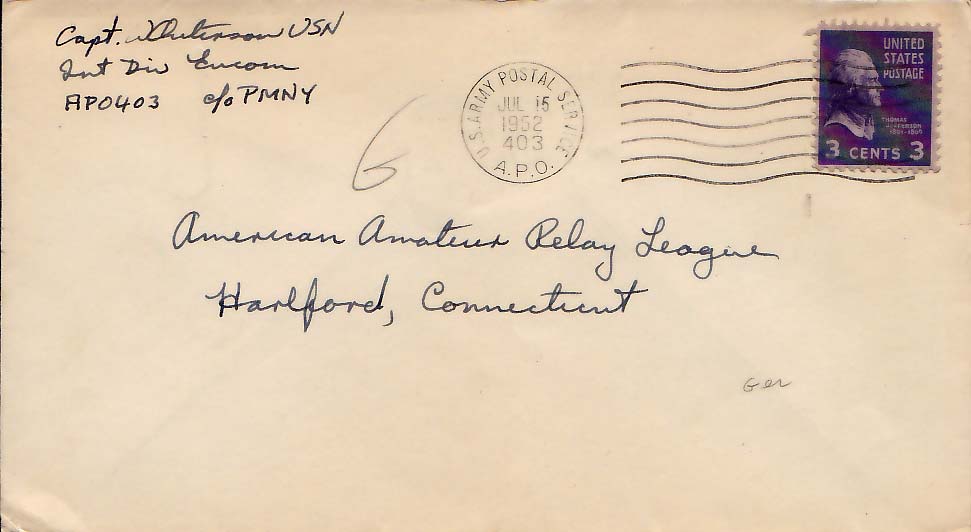 Capt. USN
Int Div Eucom
APO403 c/o PMNY
6
U.S. ARMY POSTAL SERVICE
JUL 15
1952
403
A.P.O.
UNITED
STATES
POSTAGE
THOMAS
JEFFERSON
1801-1809
3 CENTS 3
American Amateur Relay League
Hartford, Connecticut
Ger